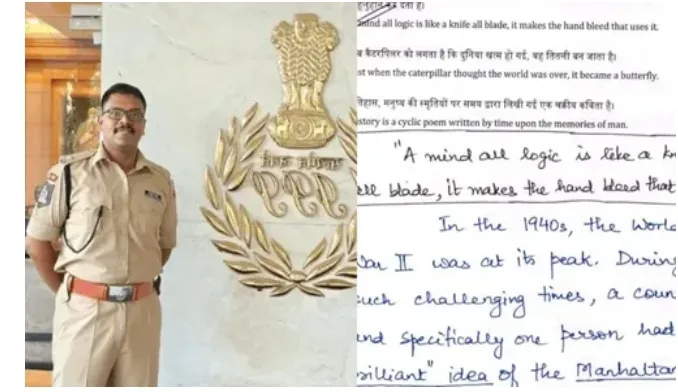 देता है।
mind all logic is like a knife all blade, it makes the hand bleed that uses it.
ब कैटरपिलर को लगता है कि दुनिया खत्म हो गई, वह तितली बन जाता है।
st when the caterpillar thought the world was over, it became a butterfly.
तिहास, मनुष्य की स्मृतियों पर समय द्वारा लिखी गई एक चक्रीय कविता है।
story is a cyclic poem written by time upon the memories of man.
"A mind all logic is like a kn
all blade, it makes the hand bleed that
In the 1940s, the World
War II was at its peak. During
such challenging times, a coun
and specifically one person had
brilliant" idea of the Manhattan